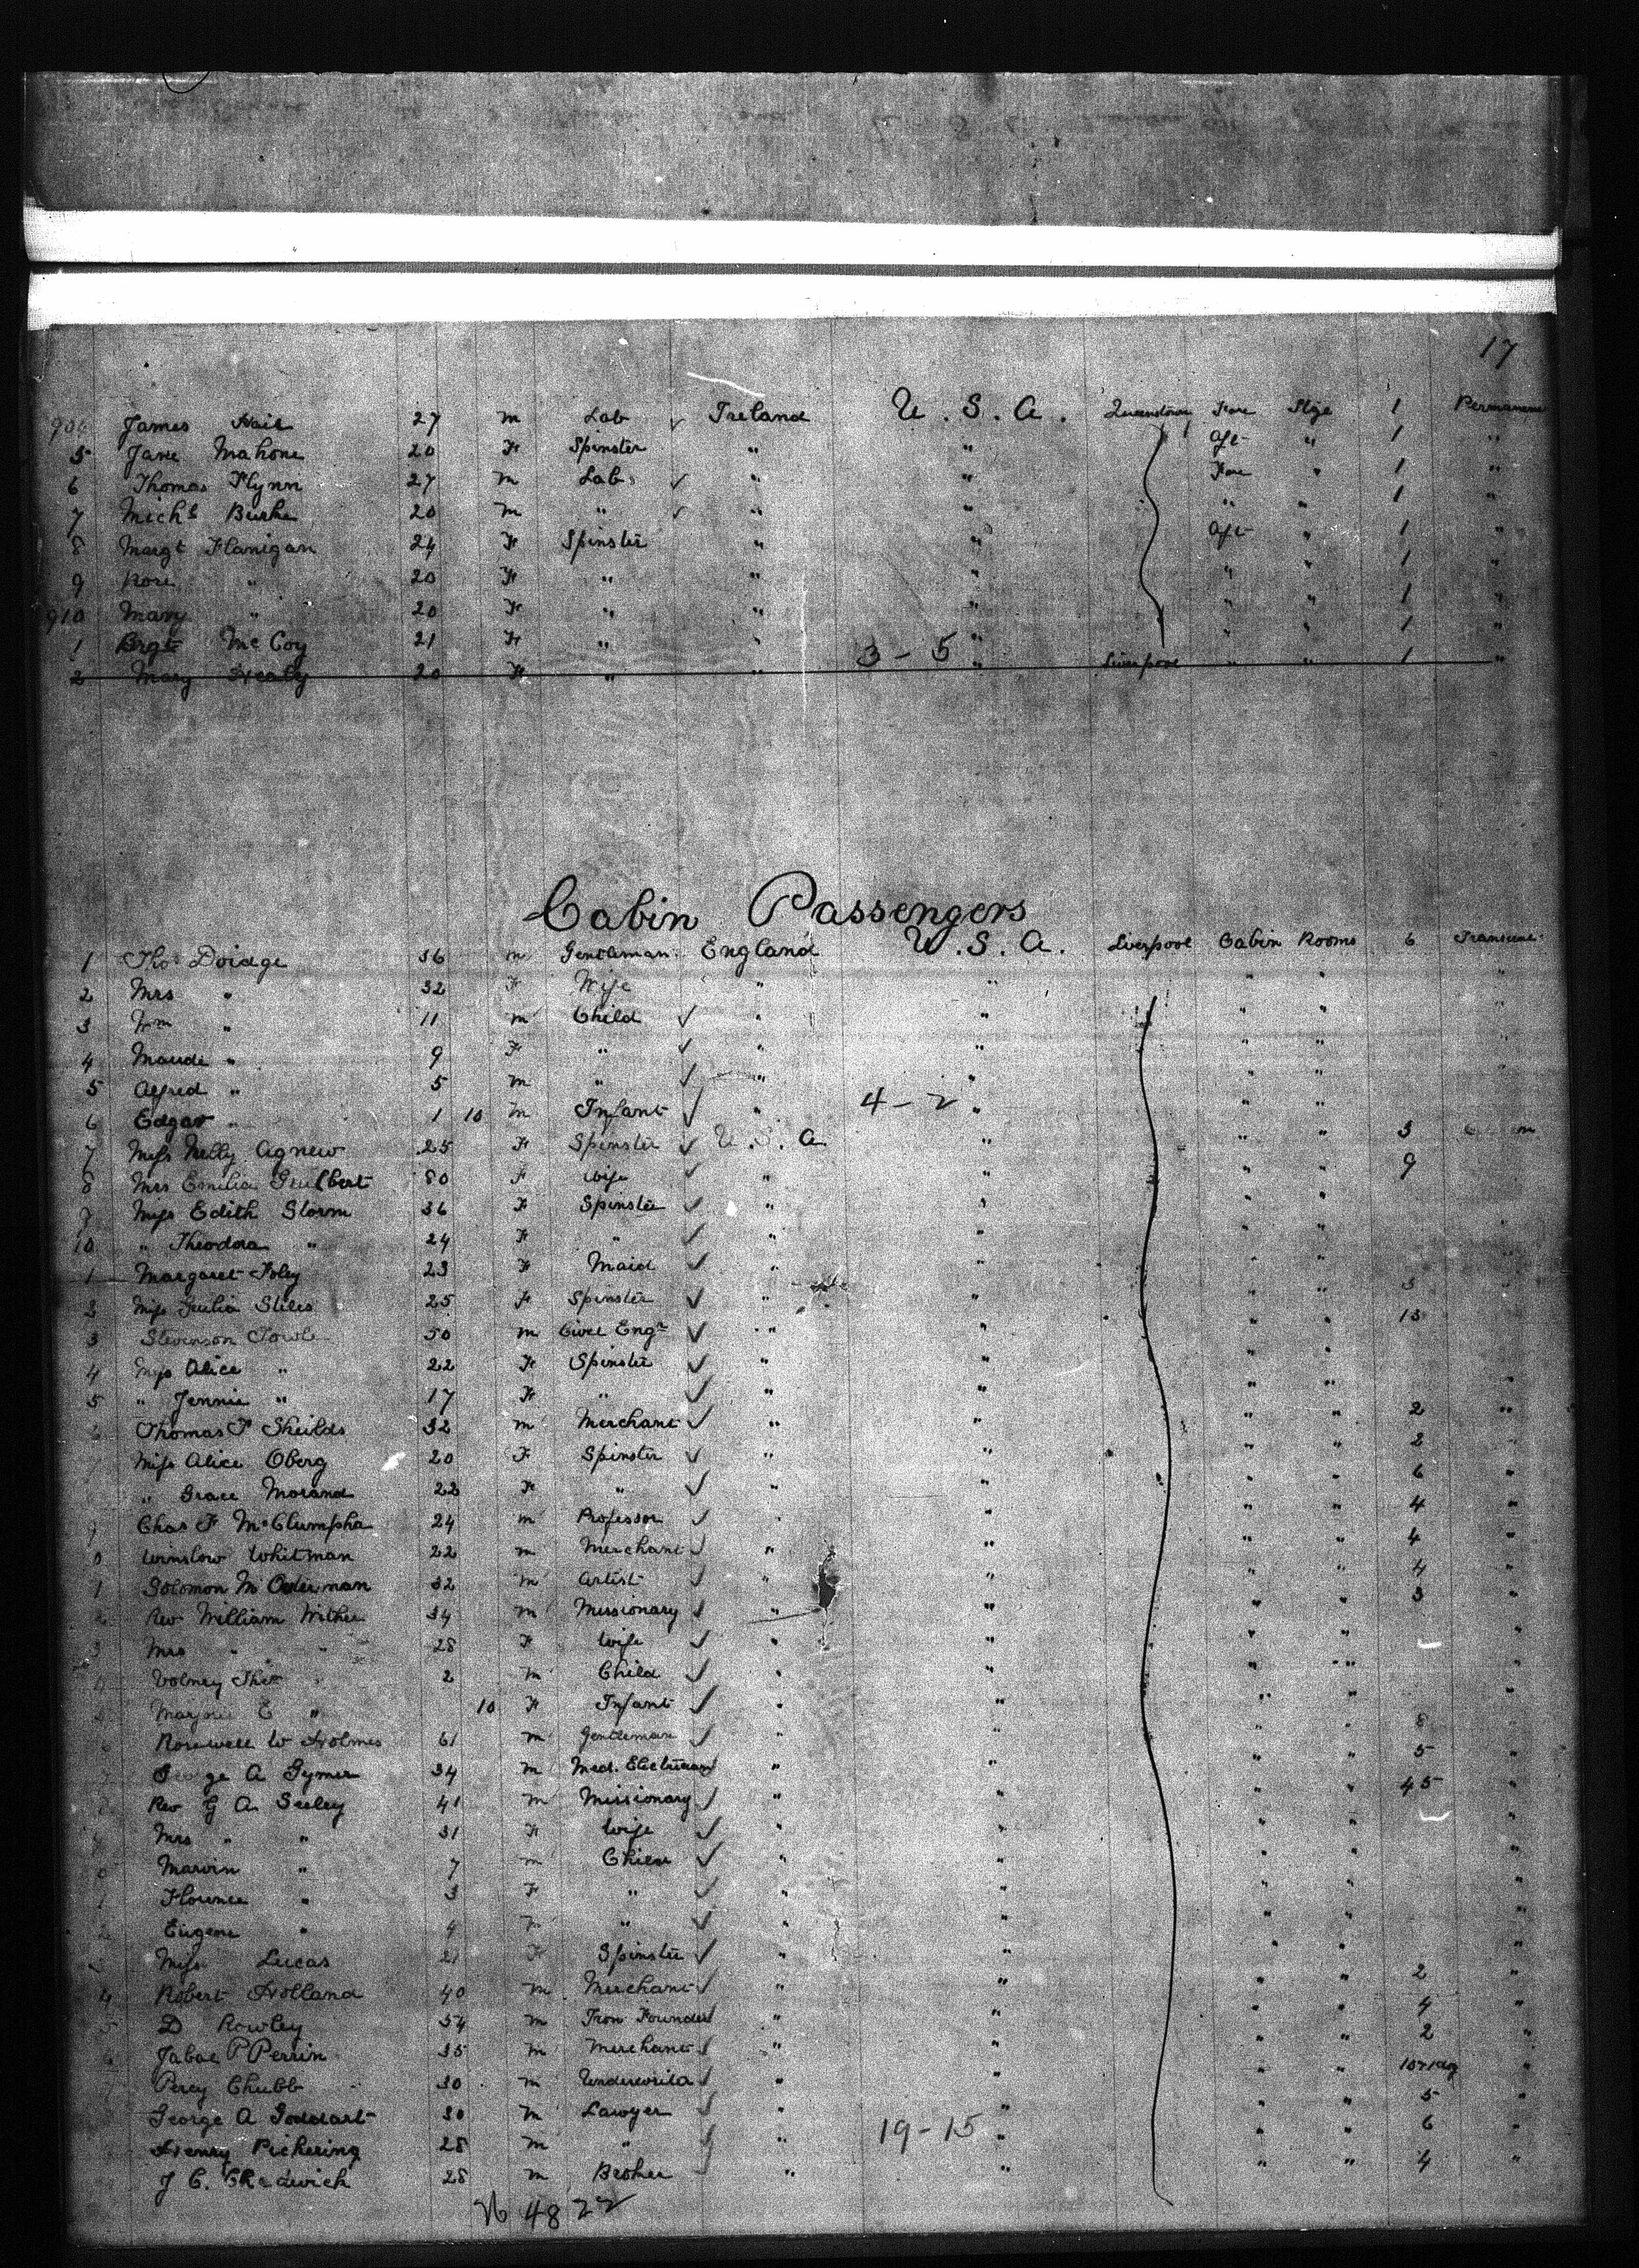 17
904 James Hail 27 m Lab ✓ Ireland U. S. A. Queenstown Fore Stge 1 Permanent
5 Jane Mahone 20 F Spinster " " Aft " 1 "
6 Thomas Flynn 27 m Lab ✓ " " Fore " 1 "
7 Michl Burke 20 m " ✓ " " " " 1 "
8 Margt Flanigan 24 F Spinster " " Aft " 1 "
9 Rose " 20 F " " " " " 1 "
910 Mary " 20 F " " " " " 1 "
1 Brgt McCoy 21 F " " " " " 1 "
2 Mary Healy 20 F " " 3-5 " Liverpool " " 1 "
Cabin Passengers
1 Thos Doidge 36 m Gentleman England U. S. A. Liverpool Cabin Rooms 6 Transient
2 Mrs " 32 F Wife " " " " "
3 Wm " 11 m Child ✓ " " " " "
4 Maude " 9 F " ✓ " " " "
5 Alfred " 5 m " ✓ " " " "
6 Edgar " 1 10 m Infant ✓ " 4-2 " " "
7 Miss Nelly Agnew 25 F Spinster ✓ U. S. A " " " 3
8 Mrs Emilia 80 F Wife ✓ " " " " 9
9 Miss Edith Storm 36 F Spinster ✓ " " " "
10 " Theodora " 24 F " ✓ " " " "
1 Margaret Foley 23 F Maid ✓ " " " "
2 Miss Julia Stiles 25 F Spinster ✓ " " " " 3
3 Stevenson Towle 50 m Civil Engr ✓ " " " " 13
4 Miss Alice " 22 F Spinster ✓ " " " "
5 " Jennie " 17 F " ✓ " " " " "
Thomas F Sheilds 32 m Merchant ✓ " " " " 2 "
Miss Alice Oberg 20 F Spinster ✓ " " " " 2 "
" Grace Morand 22 F " ✓ " " " " 6 "
9 Chas F McClumpha 24 m Professor ✓ " " " " 4 "
0 Winslow Whitman 22 m Merchant ✓ " " " " 4 "
1 Solomon M 32 m Artist ✓ " " " " 4 "
Rev William Withee 34 m Missionary ✓ " " " " 3 "
3 Mrs " " 28 F Wife ✓ " " " " "
Volney " 2 m Child ✓ " " " " "
Marjorie E " 10 F Infant ✓ " " " " "
Rosewell W Holmes 61 m Gentleman ✓ " " " " 8 "
George A Gymer 34 m Med. Electrician ✓ " " " " 5 "
Rev G A Seeley 41 m Missionary ✓ " " " " 45 "
Mrs " " 31 F Wife ✓ " " " " "
Marvin " 7 m Child ✓ " " " " "
1 Florence " 3 F " ✓ " " " " "
Eugene " 4 m " ✓ " " " " "
Miss Lucas 21 F Spinster ✓ " " " " "
4 Robert Holland 40 m Merchant ✓ " " " " 2 "
D Rowley 54 m Iron Founder ✓ " " " " 4 "
P Perrin 35 m Merchant ✓ " " " " 2 "
Percy Chubb 30 m Underwriter ✓ " " " " "
George A Goddart 30 m Lawyer ✓ " " " " 5 "
Henry Pickering 28 m " ✓ " 19-15 " " " 6 "
J C. Chadwick 28 m Broker " " " " 4 "
4822